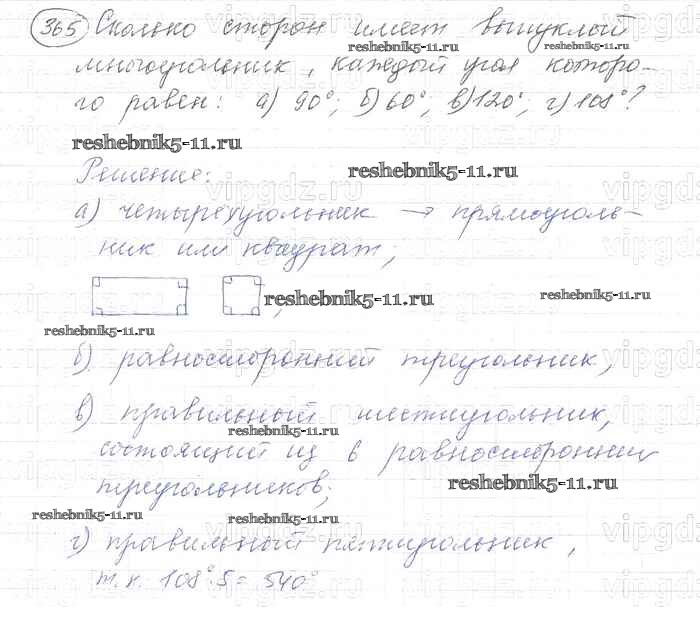 365 Сколько сторон имеет выпуклый
reshebnik5-11.ru reshebnik5-11.ru
многоугольник, каждый угол которо-
го равен: а) 90°; б) 60°; в) 120°; г) 108°?
reshebnik5-11.ru
Решение: reshebnik5-11.ru
vipgdz.ru vipgdz.ru
а) четырехугольник → прямоуголь-
ник или квадрат;
reshebnik5-11.ru reshebnik5-11.ru
reshebnik5-11.ru
б) равносторонний треугольник,
в) правильный шестиугольник,
reshebnik5-11.ru
состоящий из 6 равносторонних
треугольников; reshebnik5-11.ru
reshebnik5-11.ru reshebnik5-11.ru
г) правильный пятиугольник,
т.к. 108°·5 = 540°